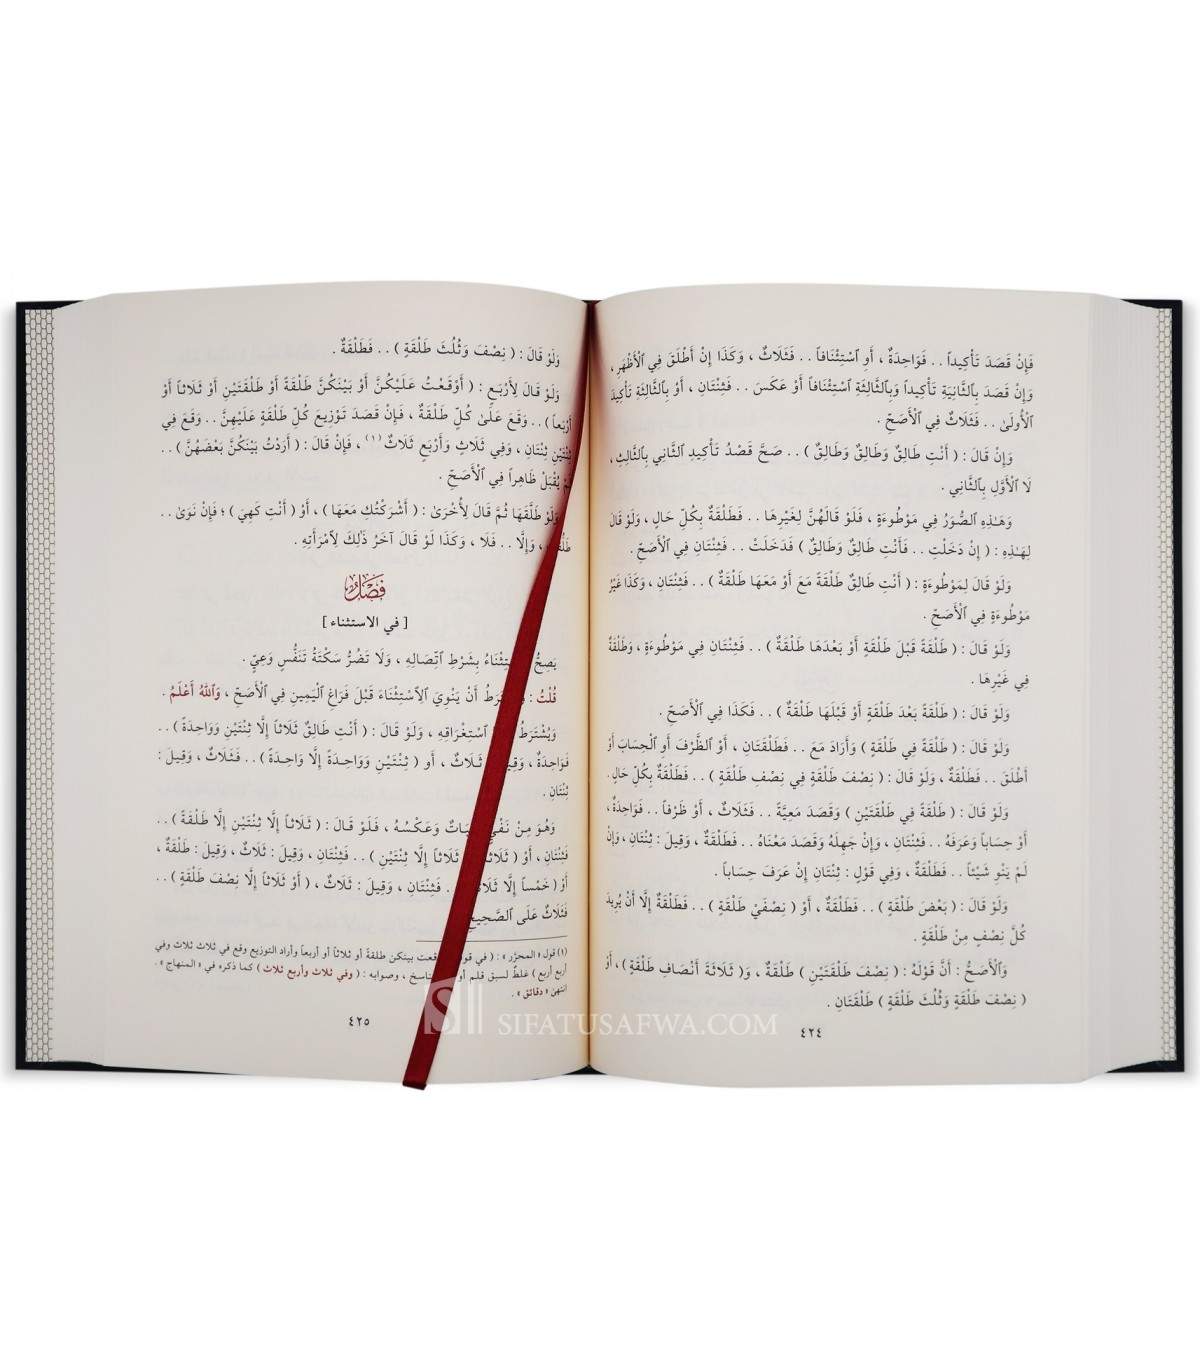 فَإِنْ قَصَدَ تَأْكِيداً . . فَوَاحِدَةٌ ، أَوِ ٱسْتِئْنَافاً . . فَثَلَاثٌ ، وَكَذَا إِنْ أَطْلَقَ فِي ٱلْأَظْهَرِ ،
وَإِنْ قَصَدَ بِٱلثَّانِيَةِ تَأْكِيداً وَبِٱلثَّالِثَةِ ٱسْتِئْنَافاً أَوْ عَكَسَ . . فَثِنْتَانِ ، أَوْ بِٱلثَّالِثَةِ تَأْكِيدَ
ٱلْأُولَىٰ . . فَثَلَاثٌ فِي ٱلْأَصَحِّ .
وَإِنْ قَالَ : ( أَنْتِ طَالِقٌ وَطَالِقٌ وَطَالِقٌ ) . . صَحَّ قَصْدُ تَأْكِيدِ ٱلثَّانِي بِٱلثَّالِثِ ،
لَا ٱلْأَوَّلِ بِٱلثَّانِي .
وَهَـٰذِهِ ٱلصُّوَرُ فِي مَوْطُوءَةٍ ، فَلَوْ قَالَهُنَّ لِغَيْرِهَا . . فَطَلْقَةٌ بِكُلِّ حَالٍ ، وَلَوْ قَالَ
لِهَـٰذِهِ : ( إِنْ دَخَلْتِ . . فَأَنْتِ طَالِقٌ وَطَالِقٌ ) فَدَخَلَتْ . . فَثِنْتَانِ فِي ٱلْأَصَحِّ .
وَلَوْ قَالَ لِمَوْطُوءَةٍ : ( أَنْتِ طَالِقٌ طَلْقَةً مَعَ أَوْ مَعَهَا طَلْقَةٌ ) . . فَثِنْتَانِ ، وَكَذَا غَيْرُ
مَوْطُوءَةٍ فِي ٱلْأَصَحِّ .
وَلَوْ قَالَ : ( طَلْقَةً قَبْلَ طَلْقَةٍ أَوْ بَعْدَهَا طَلْقَةٌ ) . . فَثِنْتَانِ فِي مَوْطُوءَةٍ ، وَطَلْقَةٌ
فِي غَيْرِهَا .
وَلَوْ قَالَ : ( طَلْقَةً بَعْدَ طَلْقَةٍ أَوْ قَبْلَهَا طَلْقَةٌ ) . . فَكَذَا فِي ٱلْأَصَحِّ .
وَلَوْ قَالَ : ( طَلْقَةً فِي طَلْقَةٍ ) وَأَرَادَ مَعَ . . فَطَلْقَتَانِ ، أَوْ ٱلظَّرْفَ أَوِ ٱلْحِسَابَ أَوْ
أَطْلَقَ . . فَطَلْقَةٌ ، وَلَوْ قَالَ : ( نِصْفَ طَلْقَةٍ فِي نِصْفِ طَلْقَةٍ ) . . فَطَلْقَةٌ بِكُلِّ حَالٍ .
وَلَوْ قَالَ : ( طَلْقَةً فِي طَلْقَتَيْنِ ) وَقَصَدَ مَعِيَّةً . . فَثَلَاثٌ ، أَوْ ظَرْفاً . . فَوَاحِدَةٌ ،
أَوْ حِسَاباً وَعَرَفَهُ . . فَثِنْتَانِ ، وَإِنْ جَهِلَهُ وَقَصَدَ مَعْنَاهُ . . فَطَلْقَةٌ ، وَقِيلَ : ثِنْتَانِ ، وَإِنْ
لَمْ يَنْوِ شَيْئاً . . فَطَلْقَةٌ ، وَفِي قَوْلٍ : ثِنْتَانِ إِنْ عَرَفَ حِسَاباً .
وَلَوْ قَالَ : ( بَعْضَ طَلْقَةٍ ) . . فَطَلْقَةٌ ، أَوْ ( نِصْفَيْ طَلْقَةٍ ) . . فَطَلْقَةٌ إِلَّا أَنْ يُرِيدَ
كُلَّ نِصْفٍ مِنْ طَلْقَةٍ .
وَٱلْأَصَحُّ : أَنَّ قَوْلَهُ : ( نِصْفَ طَلْقَتَيْنِ ) طَلْقَةٌ ، وَ( ثَلَاثَةَ أَنْصَافِ طَلْقَةٍ ) ، أَوْ
( نِصْفَ طَلْقَةٍ وَثُلُثَ طَلْقَةٍ ) طَلْقَتَانِ .
٤٢٤
وَلَوْ قَالَ : ( نِصْفَ وَثُلُثَ طَلْقَةٍ ) . . فَطَلْقَةٌ .
وَلَوْ قَالَ لِأَرْبَعٍ : ( أَوْقَعْتُ عَلَيْكُنَّ أَوْ بَيْنَكُنَّ طَلْقَةً أَوْ طَلْقَتَيْنِ أَوْ ثَلَاثاً أَوْ
أَرْبَعاً ) . . وَقَعَ عَلَىٰ كُلٍّ طَلْقَةٌ ، فَإِنْ قَصَدَ تَوْزِيعَ كُلِّ طَلْقَةٍ عَلَيْهِنَّ . . وَقَعَ فِي
ثِنْتَيْنِ ثِنْتَانِ ، وَفِي ثَلَاثٍ وَأَرْبَعٍ ثَلَاثٌ (١) ، فَإِنْ قَالَ : ( أَرَدْتُ بَيْنَكُنَّ بَعْضَهُنَّ ) . .
لَمْ يُقْبَلْ ظَاهِراً فِي ٱلْأَصَحِّ .
وَلَوْ طَلَّقَهَا ثُمَّ قَالَ لِأُخْرَىٰ : ( أَشْرَكْتُكِ مَعَهَا ) ، أَوْ ( أَنْتِ كَهِيَ ) ؛ فَإِنْ نَوَىٰ . .
، وَإِلَّا . . فَلَا ، وَكَذَا لَوْ قَالَ آخَرُ ذَٰلِكَ لِٱمْرَأَتِهِ .
فَصْلٌ
[ في الاستثناء ]
يَصِحُّ بِشَرْطِ ٱتِّصَالِهِ ، وَلَا تَضُرُّ سَكْتَةُ تَنَفُّسٍ وَعِيٍّ .
قُلْتُ : أَنْ يَنْوِيَ ٱلِٱسْتِثْنَاءَ قَبْلَ فَرَاغِ ٱلْيَمِينِ فِي ٱلْأَصَحِّ ، وَٱللهُ أَعْلَمُ .
وَيُشْتَرَطُ ٱسْتِغْرَاقِهِ ، وَلَوْ قَالَ : ( أَنْتِ طَالِقٌ ثَلَاثاً إِلَّا ثِنْتَيْنِ وَوَاحِدَةً ) . .
فَوَاحِدَةٌ ، ثَلَاثٌ ، أَو ( ثِنْتَيْنِ وَوَاحِدَةً إِلَّا وَاحِدَةً ) . . فَثَلَاثٌ ، وَقِيلَ :
ثِنْتَانِ .
وَهُوَ مِنْ نَفْيٍ وَعَكْسُهُ ، فَلَوْ قَالَ : ( ثَلَاثاً إِلَّا ثِنْتَيْنِ إِلَّا طَلْقَةً ) . .
فَثِنْتَانِ ، أَوْ ( ثَلَاثاً إِلَّا ثِنْتَيْنِ ) . . فَثِنْتَانِ ، وَقِيلَ : ثَلَاثٌ ، وَقِيلَ : طَلْقَةٌ ،
أَوْ ( خَمْساً إِلَّا . . فَثِنْتَانِ ، وَقِيلَ : ثَلَاثٌ ، ( أَوْ ثَلَاثاً إِلَّا نِصْفَ طَلْقَةٍ ) . .
فَثَلَاثٌ عَلَى ٱلصَّحِيحِ
(١) قول « المحرَّر » : ( في بينكن طلقة أو ثلاثاً أو أربعاً وأراد التوزيع وقع في ثلاث ثلاث وفي
أربع أربع ) غلطٌ لسبق قلم أو ، وصوابه : ( وفي ثلاث وأربع ثلاث ) كما ذكره في « المنهاج » .
انتهىٰ « دقائق » .
٤٢٥
SIFATUSAFWA.COM